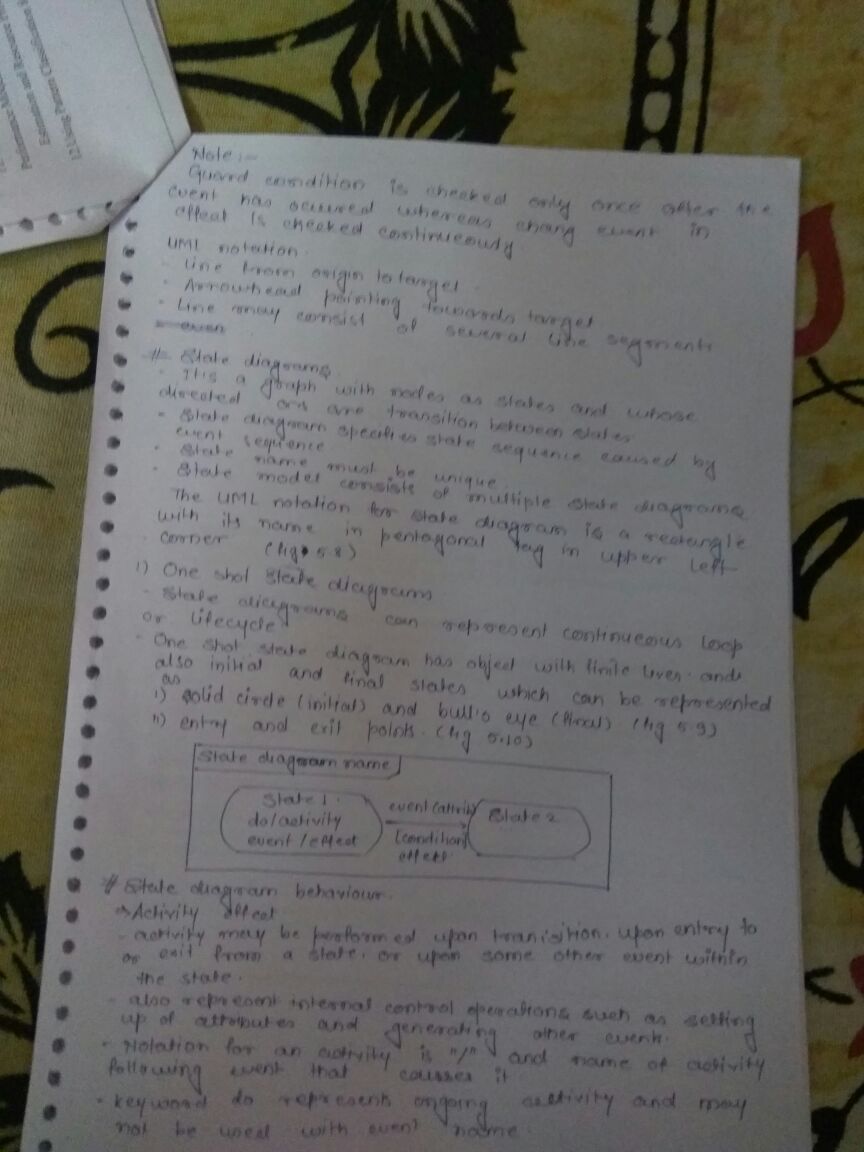 12 Using Pattern Classification
Estimation and Resource
Performance
Note :-
Guard condition is checked only once after the
event has occured whereas chang event in
effeat is checked continueously
UML notation.
- Line from origin to target.
- Arrowhead pointing towards target
- Line may consist of several line segments
# State diagrams.
- It is a graph with nodes as states and whose
directed are transition between states
- State diagram specifies state sequence caused by
event sequence
- State name must be unique.
- State model consists of multiple state diagrams
The UML notation for state diagram is a rectangle
with its name in pentagonal tag in upper left
corner (fig 5.8)
1) One shot State diagrams
- State diagrams can represent continueous loop
or lifecycle
- One shot state diagram has object with finite lives and
also initial and final states which can be represented
as
i) solid circle (initial) and bull's eye (final) (fig 5.9)
ii) entry and exit points. (fig 5.10)
State diagram name
State 1.
do/activity
event / effect
event (attrib)
[condition]
effect
State 2
# State diagram behaviour.
→ Activity effect
- activity may be performed upon tranisition. upon entry to
or exit from a state. or upon some other event within
the state.
- also represent internal control operations such as setting
up of attributes and generating other event.
- Notation for an activity is "/" and name of activity
following event that causses it
- keyword do represents ongoing activity and may
not be used with event name.